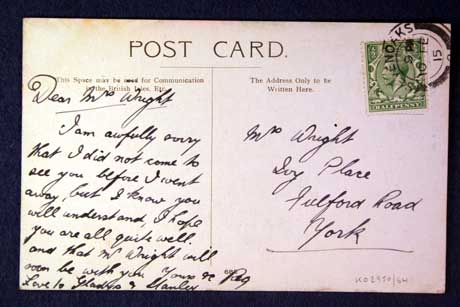 POST CARD.
This Space may be used for Communication
in the British Isles, Etc.
The Address Only to be
Written Here.
HALFPENNY
ENOAKS
10 FE
15
Dear Mrs Wright
I am awfully sorry
that I did not come to
see you before I went
away, but I know you
will understand, I hope
you are all quite well.
and that Mr Wright will
soon be with you Yours &c Reg
Love to Gladys & Stanley
Mrs Wright
Ivy Place
Fulford Road
York